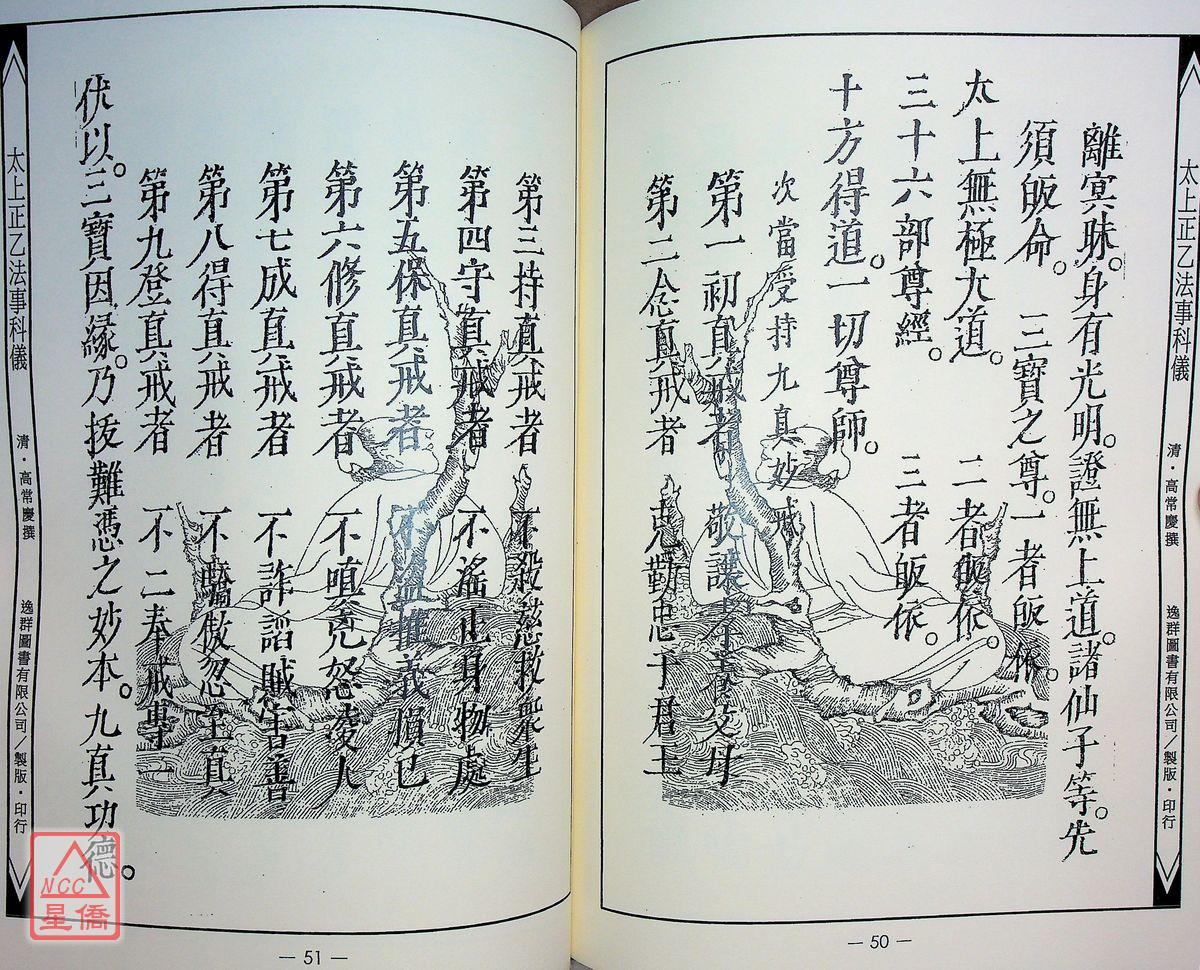 太上正乙法事科儀 清・高常慶撰 逸群圖書有限公司／製版・印行
離冥昧。身有光明。證無上道。諸仙子等。先
須皈命。 三寶之尊。一者皈依。
太上無極大道。 二者皈依。
三十六部尊經。 三者皈依。
十方得道。一切尊師。
次當受持九真妙戒
第一初真戒者 敬讓孝養父母
第二念真戒者 克勤忠于君王
— 50 —
第三持真戒者 不殺慈救眾生
第四守真戒者 不淫正身物處
第五保真戒者 不盜推義損己
第六修真戒者 不嗔兇怒凌人
第七成真戒者 不詐謟賊害善
第八得真戒者 不驕傲忽至真
第九登真戒者 不二奉戒專一
伏以。三寶因緣。乃拔難憑之妙本。九真功德。
太上正乙法事科儀 清・高常慶撰 逸群圖書有限公司／製版・印行
— 51 —
NCC
星僑